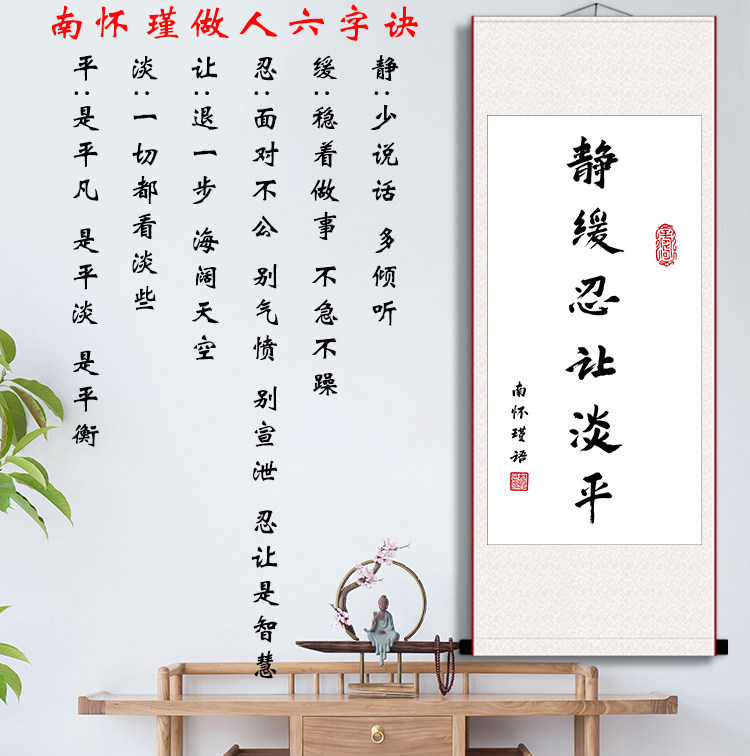 南怀瑾做人六字诀
静：少说话 多倾听
缓：稳着做事 不急不躁
忍：面对不公 别气愤 别宣泄 忍让是智慧
让：退一步 海阔天空
淡：一切都看淡些
平：是平凡 是平淡 是平衡
静缓忍让淡平
南怀瑾语